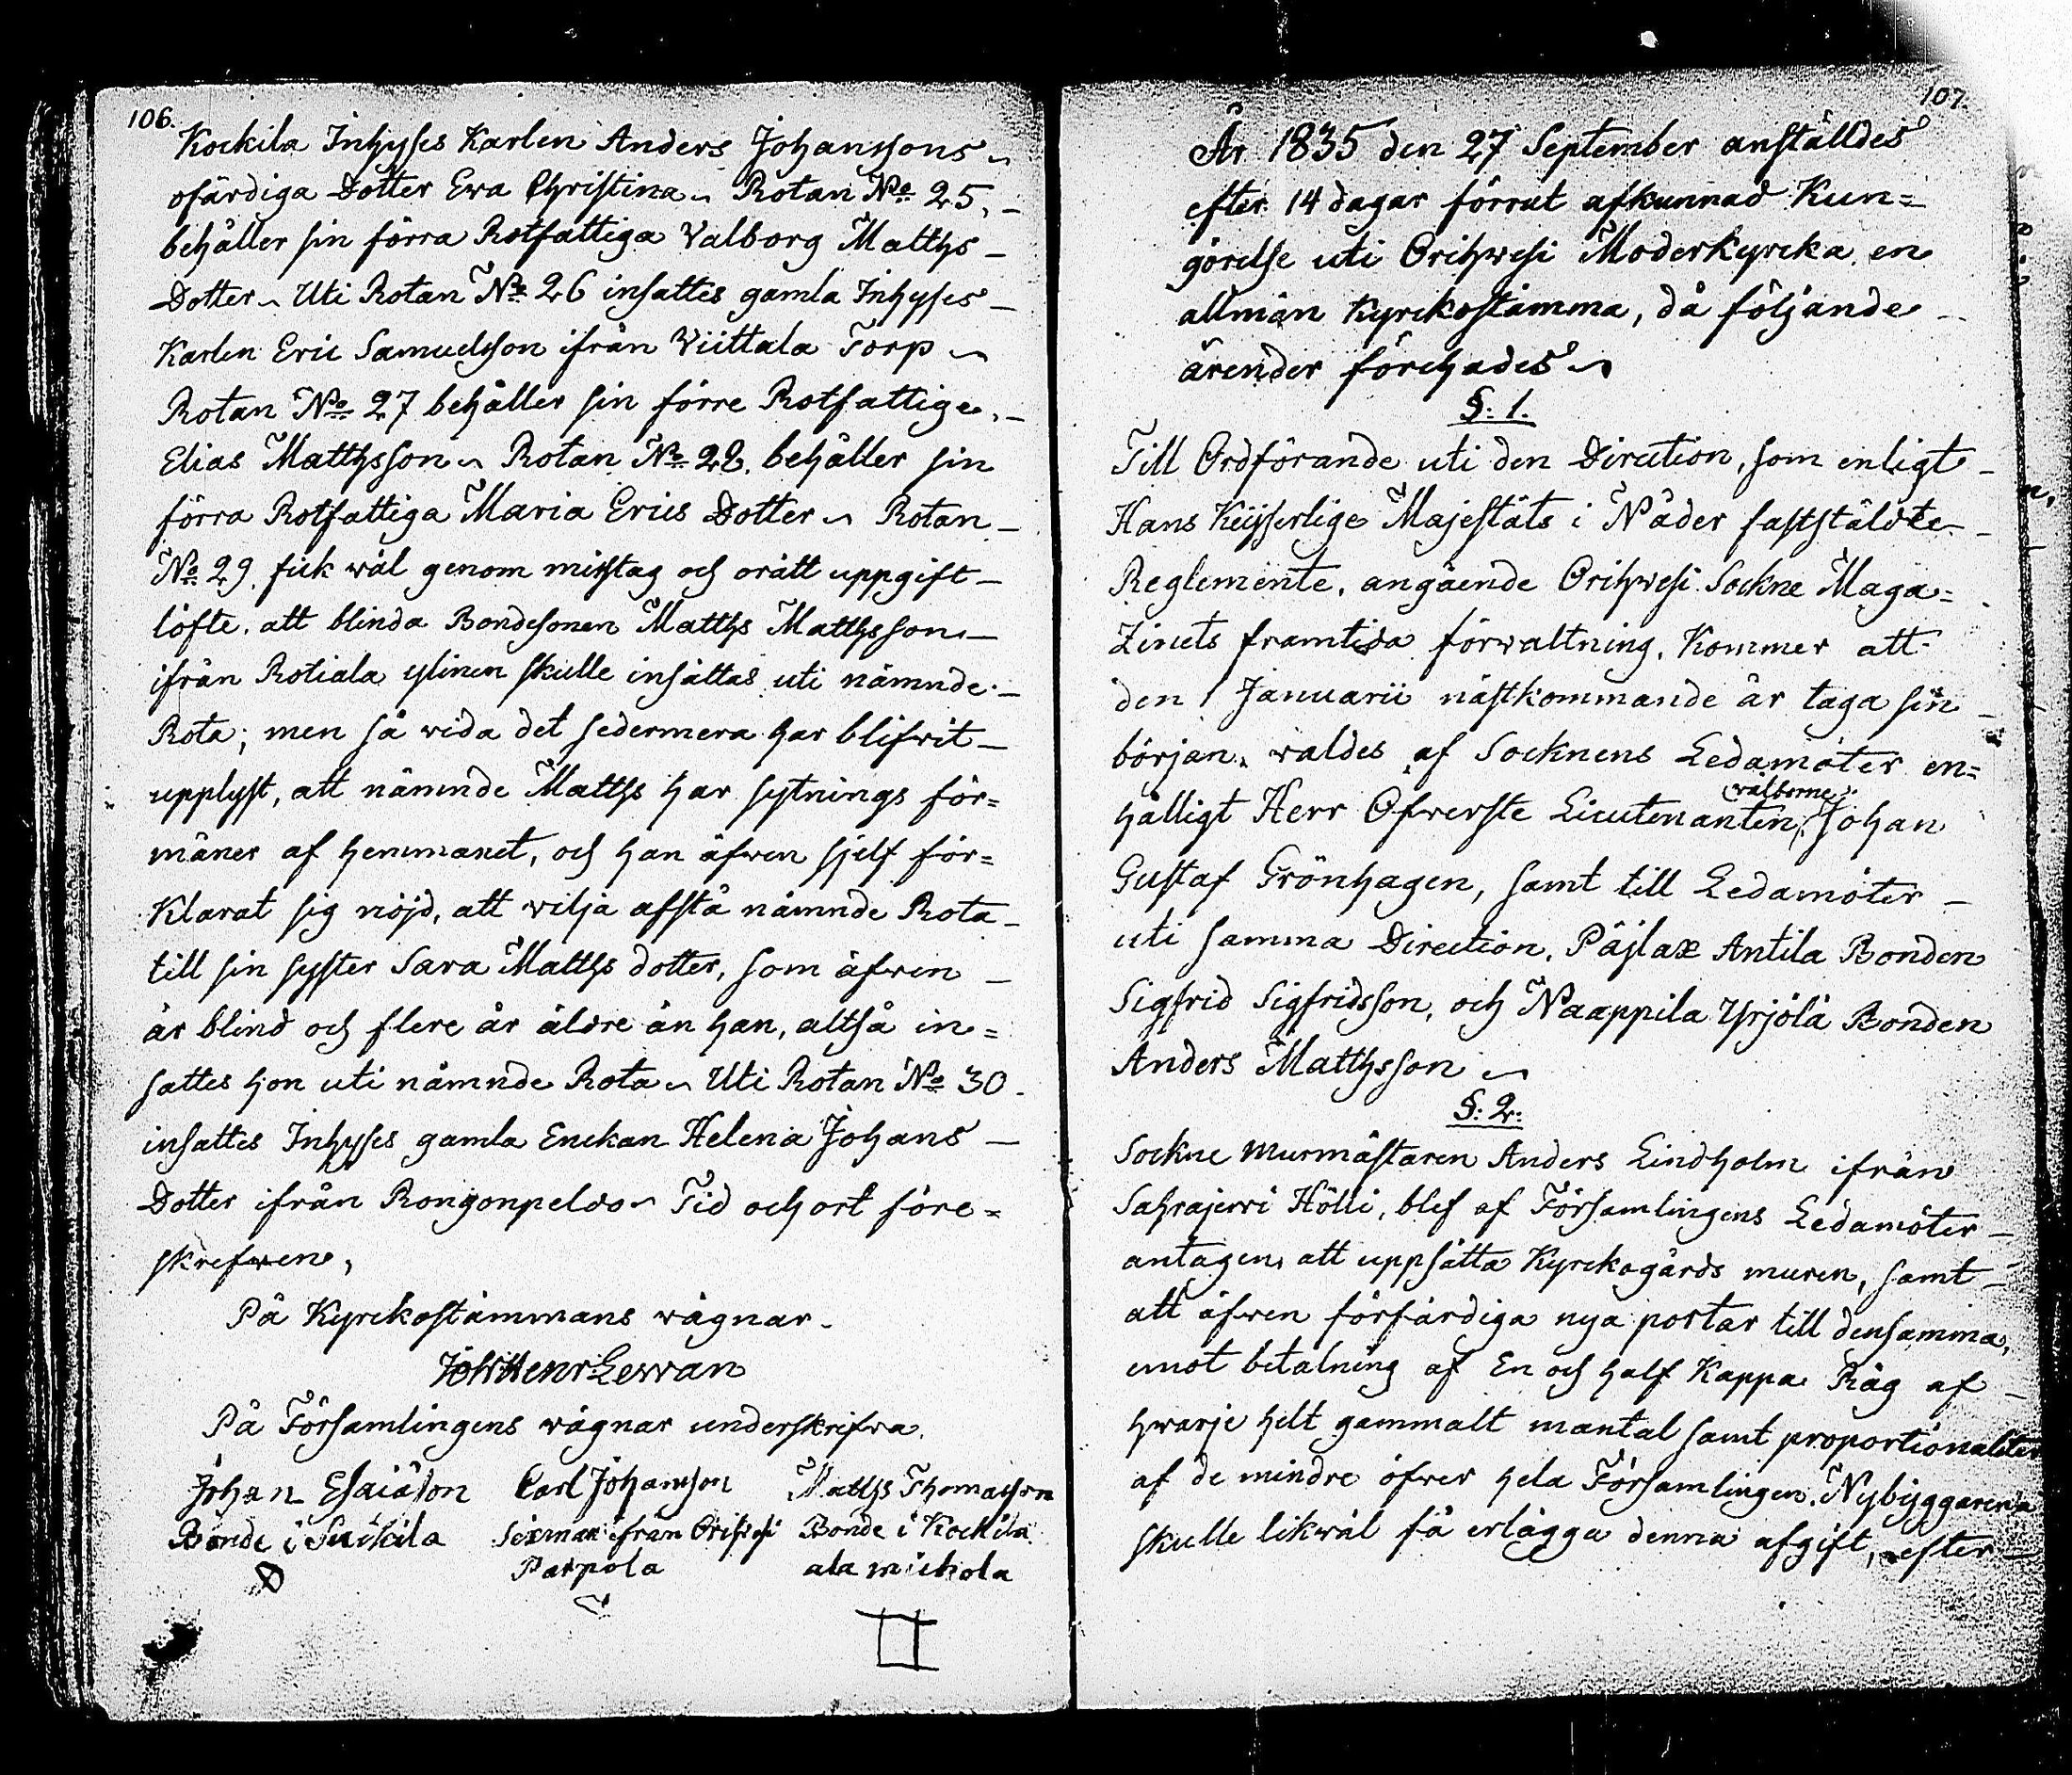 106.
Kockila Inhyses Karlen Anders Johanssons
ofärdiga Dotter Ewa Christina Rotan No 25.
behåller sin förra Rotfattiga Valborg Matths
Dotter Uti Rotan No 26 insattes gamla Inhyses
Karlen Eric Samuelsson ifrån Viittala Torp
Rotan No 27 behåller sin förre Rotfattige
Elias Matthsson Rotan No 28. behåller sin
förra Rotfattiga Maria Erics Dotter Rotan
No 29. fick wäl genom misstag och orätt uppgift
löfte, att blinda Bondesonen Matths Matthsson
ifrån Rotiala ylinen skulle insättas uti nämnde
Rota; men så wida det sedermera har blifwit
upplyst, att nämnde Matths har sytnings för=
måner af hemmanet, och han äfwen sjelf för=
klarat sig nöjd, att wilja afstå nämnde Rota
till sin syster Sara Matths dotter, som äfwen
är blind och flere år äldre än han, altså in=
sattes hon uti nämnde Rota Uti Rotan No 30.
insattes Inhyses gamla Enckan Helena Johans
Dotter ifrån Rongonpeldo Tid och ort före=
skrefwen,
På Kyrckostämmans wägnar.
Joh: Henr: Lewan
På Församlingens wägnar underskrifwa.
Johan Esaiäson Carl Johansson Matths Thomasson
Bonde i Suikila Sexman ifrån Orihwesi Bonde i Kockila
Parpola ala mickola
107.
År 1835 den 27 September anställdes
efter 14 dagar förrut afkunnad Kun=
görelse uti Orihwesi Moderkyrcka en
allmän Kyrckostämma, då följande
ärender förehades
§: 1.
Till Ordförande uti den Direction, som enligt
Hans Keijserlige Majestäts i Nåder fastställdte
Reglemente, angående Orihwesi Sockne Maga=
Zinets framtida förwaltning, Kommer att
den 1 Januarii nästkommande år taga sin
början, waldes af Socknens Ledamöter en=
wälborne
hälligt Herr Öfwerste Lieutenanten, Johan
Gustaf Grönhagen, samt till Ledamöter
uti samma Direction, Päjlax Antila Bonden
Sigfrid Sigfridsson, och Naappila Yrjölä Bonden
Anders Matthsson
§: 2:
Sockne Murmästaren Anders Lindholm ifrån
Sahrajerwi Hölli, blef af Församlingens Ledamöter
antagen, att uppsätta Kyrckogårds muren, samt
att äfwen förfärdiga nya portar till densamma,
emot betalning af En och half Kappa Råg af
hwarje helt gammalt mantal samt proportionaliter
af de mindre öfwer hela Församlingen. Nybyggarena
skulle likwäl få erlägga denna afgift, efter